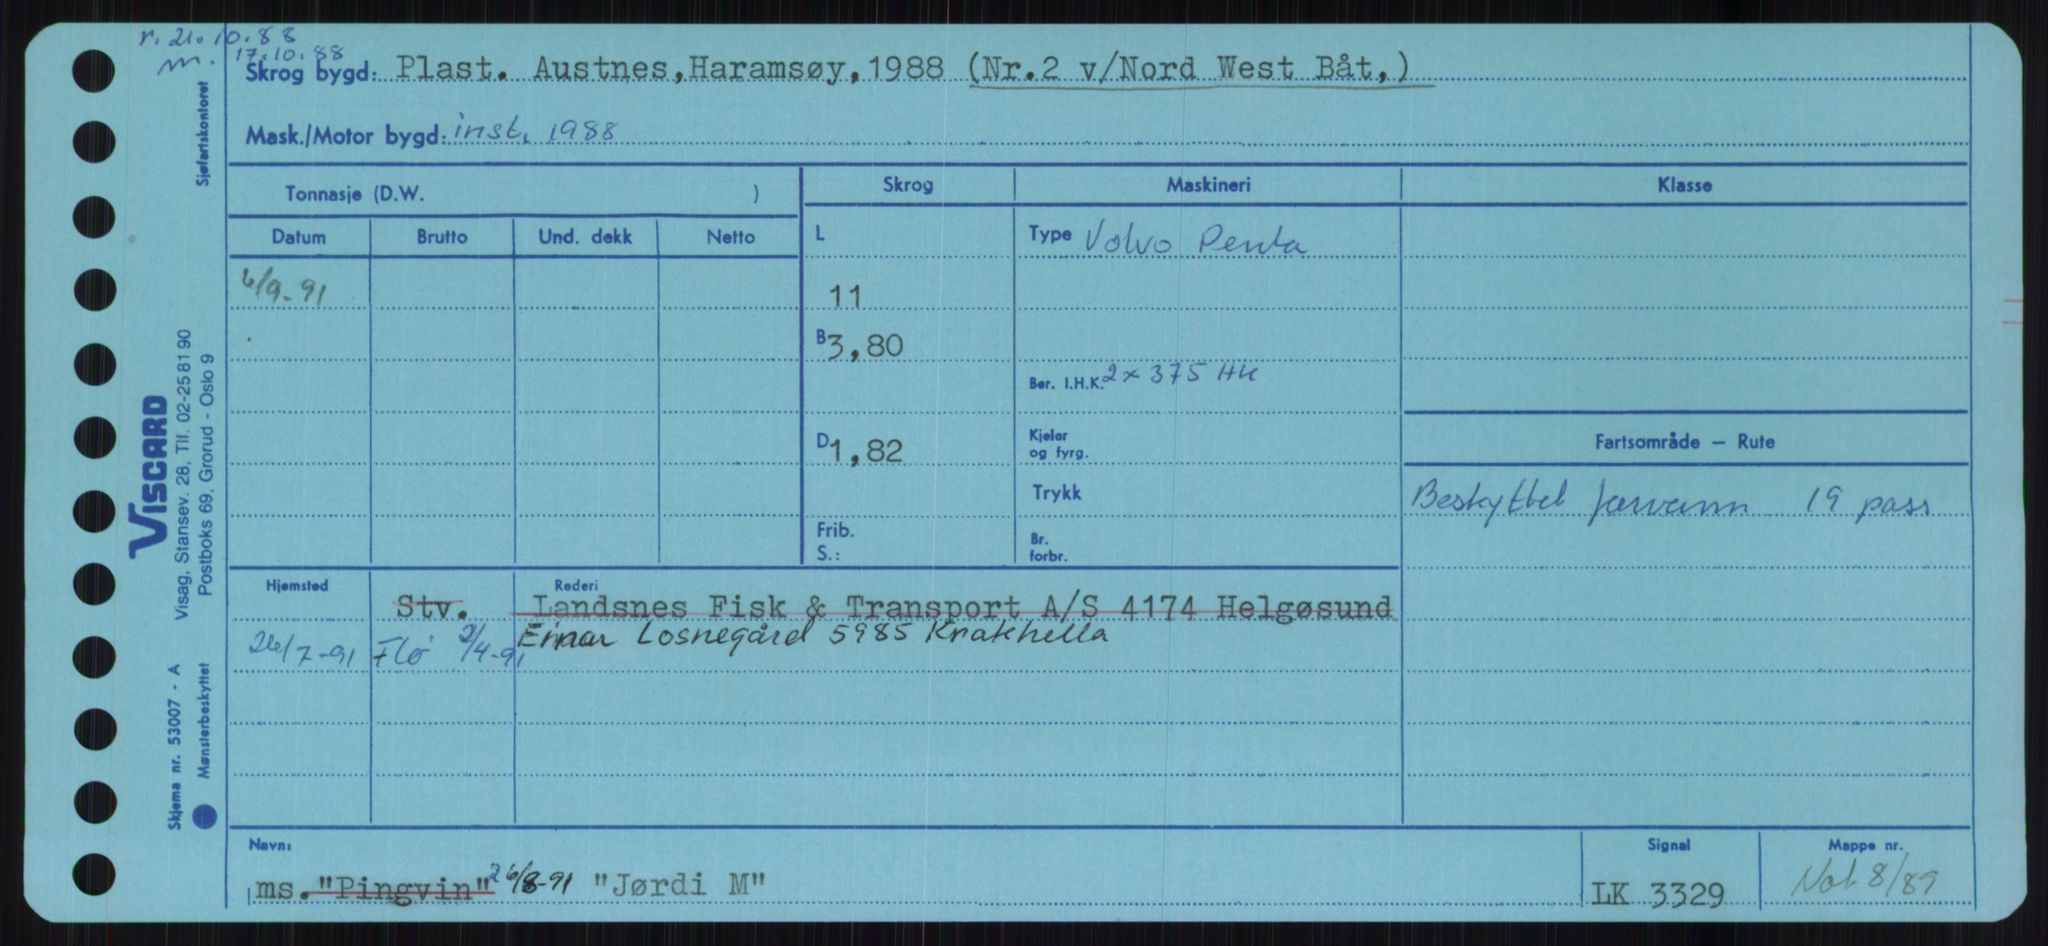 r. 21.10.88
m. 17.10.88
Skrog bygd: Plast. Austnes,Haramsøy,1988 (Nr.2 v/Nord West Båt,)
Mask./Motor bygd: inst. 1988
Sjøfartskontoret
Tonnasje (D.W. )
Skrog
Maskineri
Klasse
Datum
Brutto
Und. dekk
Netto
L
Type Volvo Penta
6/9-91
11
B 3,80
Ber. I.H.K. 2 x 375 HK
D 1,82
Kjelar og fyrg.
Fartsområde — Rute
Trykk
Beskyttet farvann 19 pass
Frib.
S.:
Br. forbr.
Hjemsted
Rederi
Stv. Landsnes Fisk & Transport A/S 4174 Helgøsund
26/7-91 Flø 2/4-91 Einar Losnegård 5985 Krakhella
VISCARD
Visag, Stansev. 28, Tlf. 02-258190
Postboks 69, Grorud - Oslo 9
Skjema nr. 53007 - A
Mønsterbeskyttet
Navn:
Signal
Mappe nr.
ms. "Pingvin" 26/8-91 "Jørdi M"
LK 3329
Not 8/89